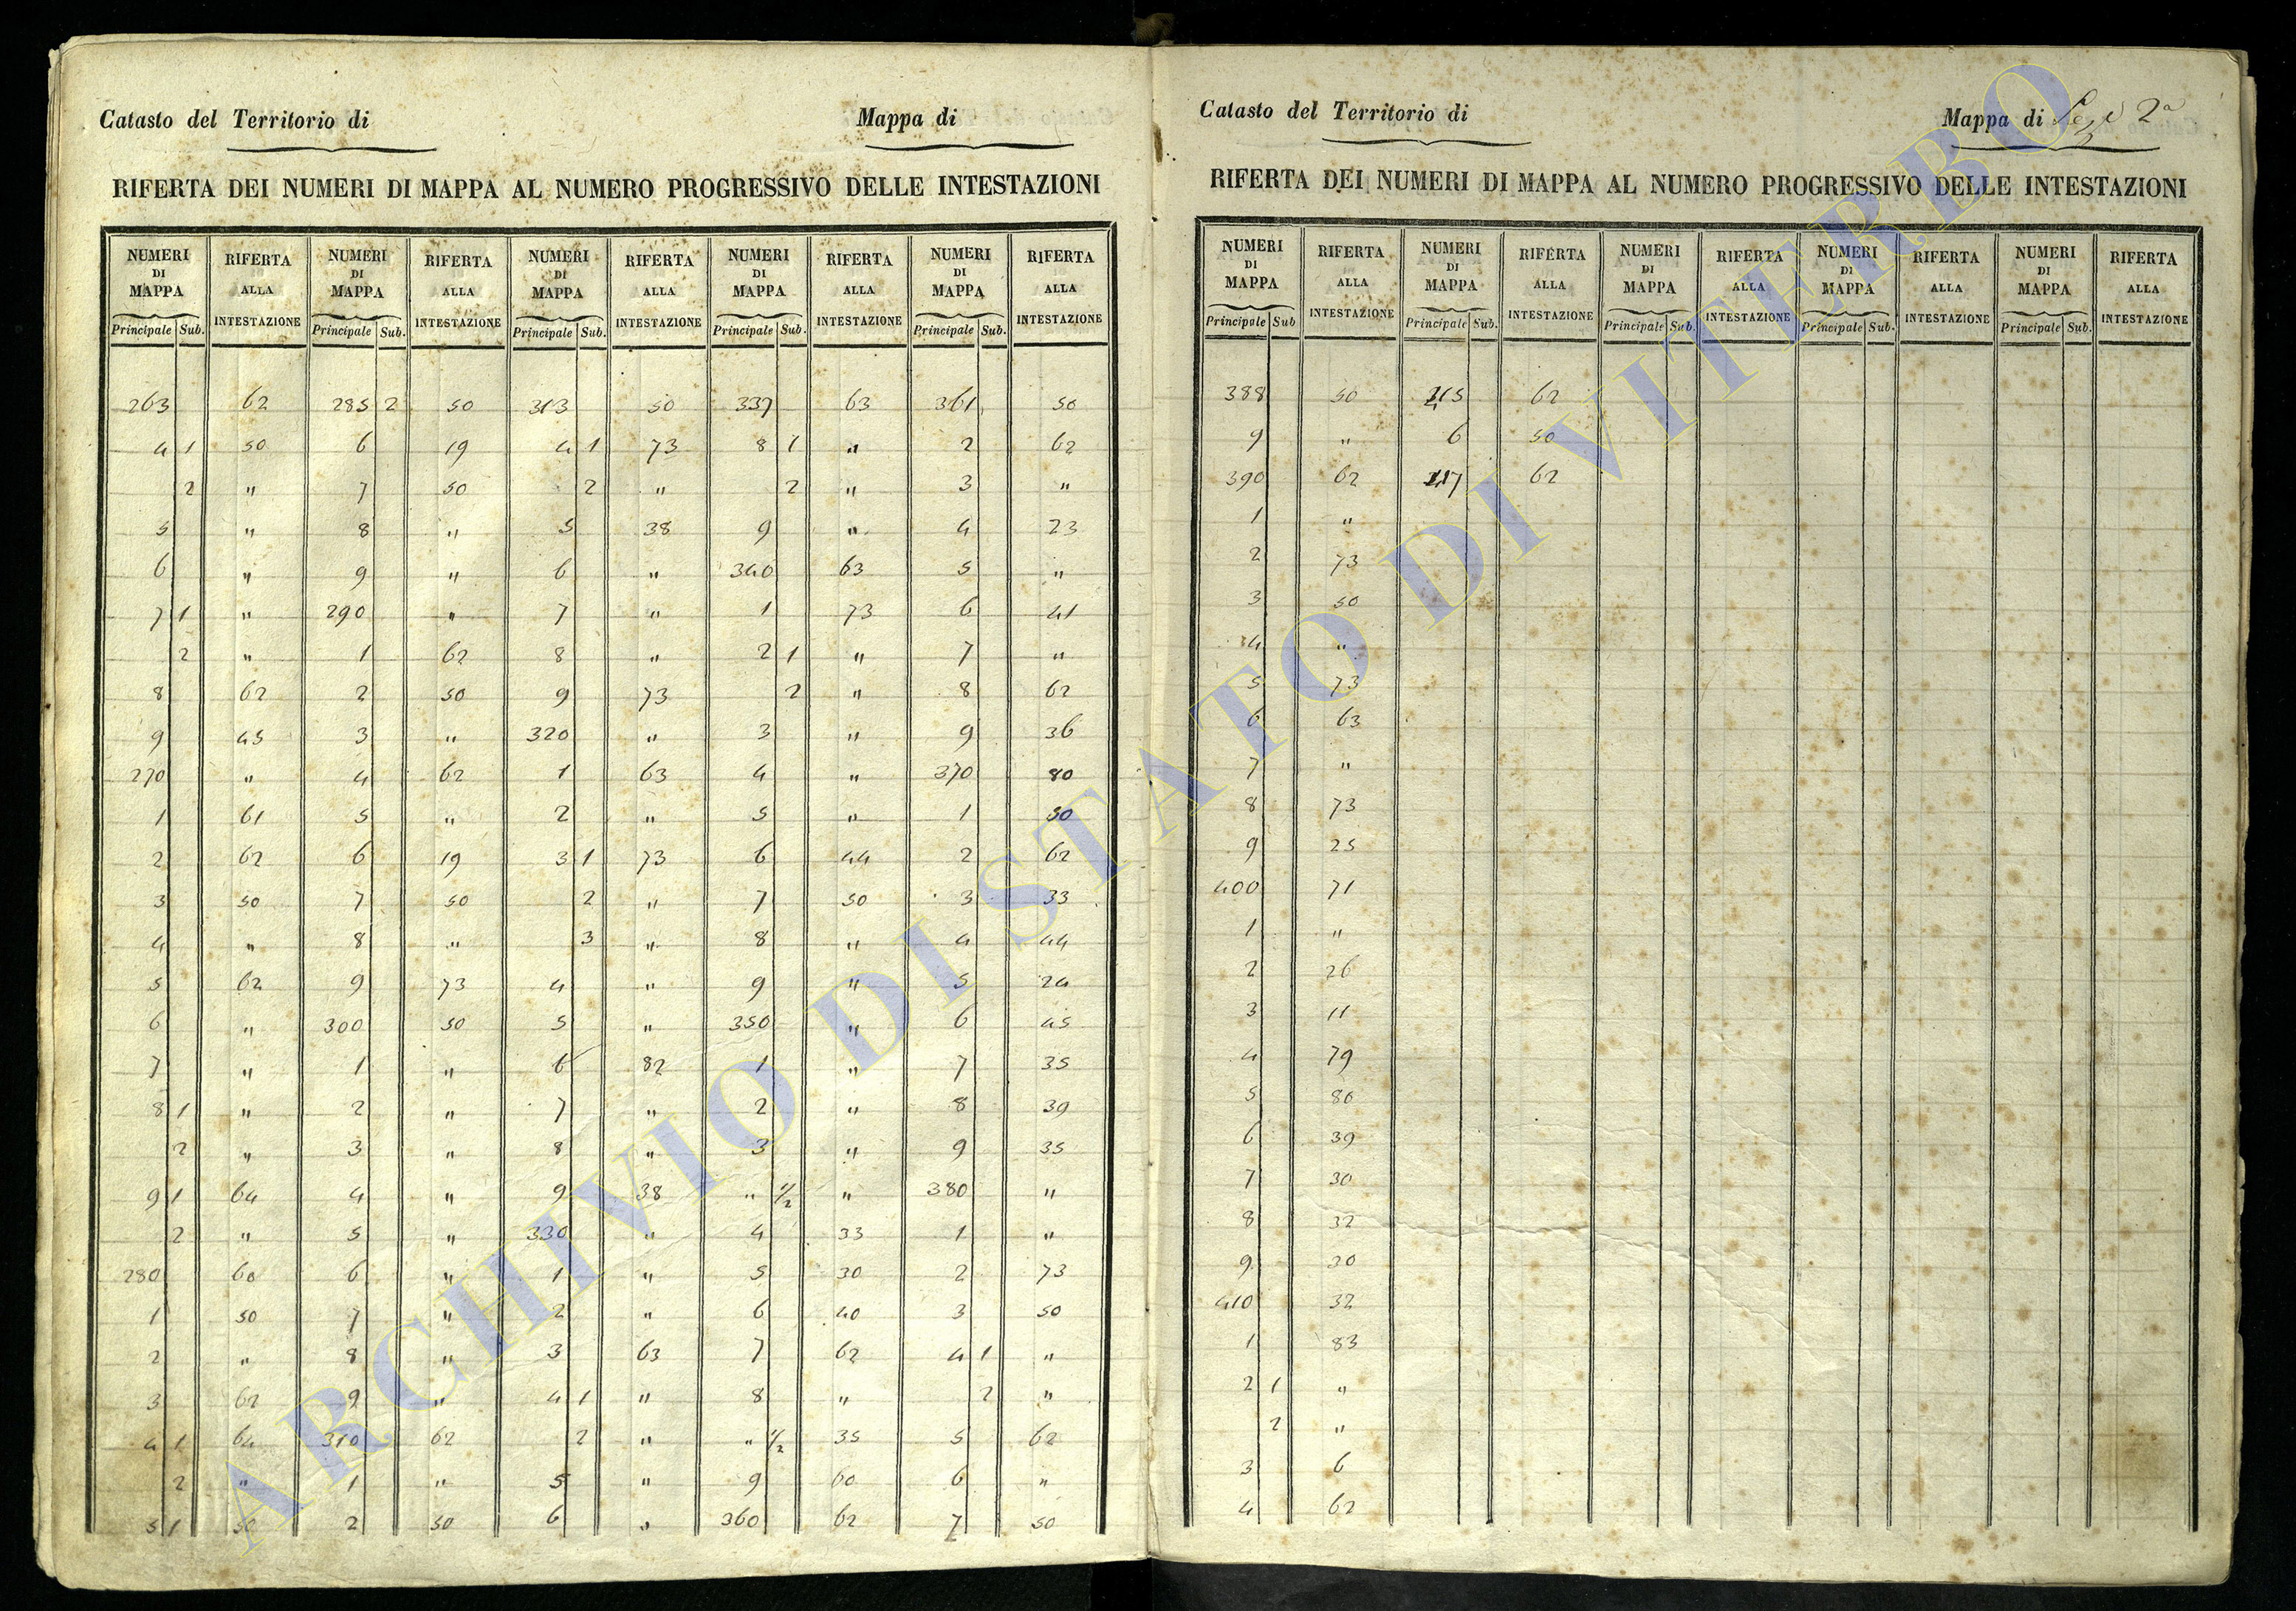 Catasto del Territorio di Mappa di
RIFERTA DEI NUMERI DI MAPPA AL NUMERO PROGRESSIVO DELLE INTESTAZIONI
NUMERI RIFERTA NUMERI RIFERTA NUMERI RIFERTA NUMERI RIFERTA NUMERI RIFERTA
DI ALLA DI ALLA DI ALLA DI ALLA DI ALLA
MAPPA INTESTAZIONE MAPPA INTESTAZIONE MAPPA INTESTAZIONE MAPPA INTESTAZIONE MAPPA INTESTAZIONE
Principale Sub. Principale Sub. Principale Sub. Principale Sub. Principale Sub.
263 62 285 2 50 313 50 337 63 361 50
4 1 50 6 19 4 1 73 8 1 " 2 62
2 " 7 50 2 " 2 " 3 "
5 " 8 " 5 38 9 " 4 23
6 " 9 " 6 " 340 63 5 "
7 1 " 290 " 7 " 1 73 6 41
2 " 1 62 8 " 2 1 " 7 "
8 62 2 50 9 73 2 " 8 62
9 45 3 " 320 " 3 " 9 36
270 " 4 62 1 63 4 " 370 80
1 61 5 " 2 " 5 " 1 50
2 62 6 19 3 1 73 6 44 2 62
3 50 7 50 2 " 7 50 3 33
4 " 8 " 3 " 8 " 4 44
5 62 9 73 4 " 9 " 5 24
6 " 300 50 5 " 350 " 6 45
7 " 1 " 6 82 1 " 7 35
8 1 " 2 " 7 " 2 " 8 39
2 " 3 " 8 " 3 " 9 35
9 1 64 4 " 9 38 " 1/2 " 380 "
2 " 5 " 330 " 4 33 1 "
280 60 6 " 1 " 5 30 2 73
1 50 7 " 2 " 6 40 3 50
2 " 8 " 3 63 7 62 4 1 "
3 62 9 " 4 1 " 8 " 2 "
4 1 64 310 62 2 " " 1/2 35 5 62
2 " 1 " 5 " 9 60 6 "
5 1 50 2 50 6 " 360 62 7 50
Catasto del Territorio di Mappa di 2a
RIFERTA DEI NUMERI DI MAPPA AL NUMERO PROGRESSIVO DELLE INTESTAZIONI
NUMERI RIFERTA NUMERI RIFERTA NUMERI RIFERTA NUMERI RIFERTA NUMERI RIFERTA
DI ALLA DI ALLA DI ALLA DI ALLA DI ALLA
MAPPA INTESTAZIONE MAPPA INTESTAZIONE MAPPA INTESTAZIONE MAPPA INTESTAZIONE MAPPA INTESTAZIONE
Principale Sub Principale Sub. Principale Sub. Principale Sub. Principale Sub.
388 50 415 62
9 " 6 50
390 62 417 62
1 "
2 73
3 50
4 "
5 73
6 63
7 "
8 73
9 25
400 71
1 "
2 26
3 11
4 79
5 80
6 39
7 30
8 32
9 30
410 32
1 83
2 1 "
2 "
3 6
4 62
ARCHIVIO DI STATO DI VITERBO